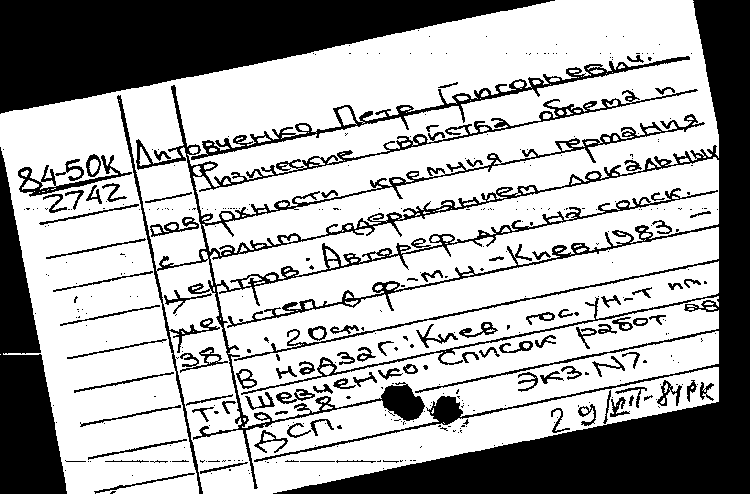 84-50к
2742
Литовченко, Петр Григорьевич.
Физические свойства объема и
поверхности кремния и германия
с малым содержанием локальных
центров: Автореф. дис. на соиск.
учен. степ. д ф.-м. н. - Киев, 1983. -
38 с. ; 20 см.
В надзаг.: Киев. гос. ун-т им.
Т. Г. Шевченко. Список работ авт.
с. 29-38.
ДСП. Экз. N7.
29/VIII-84 РК